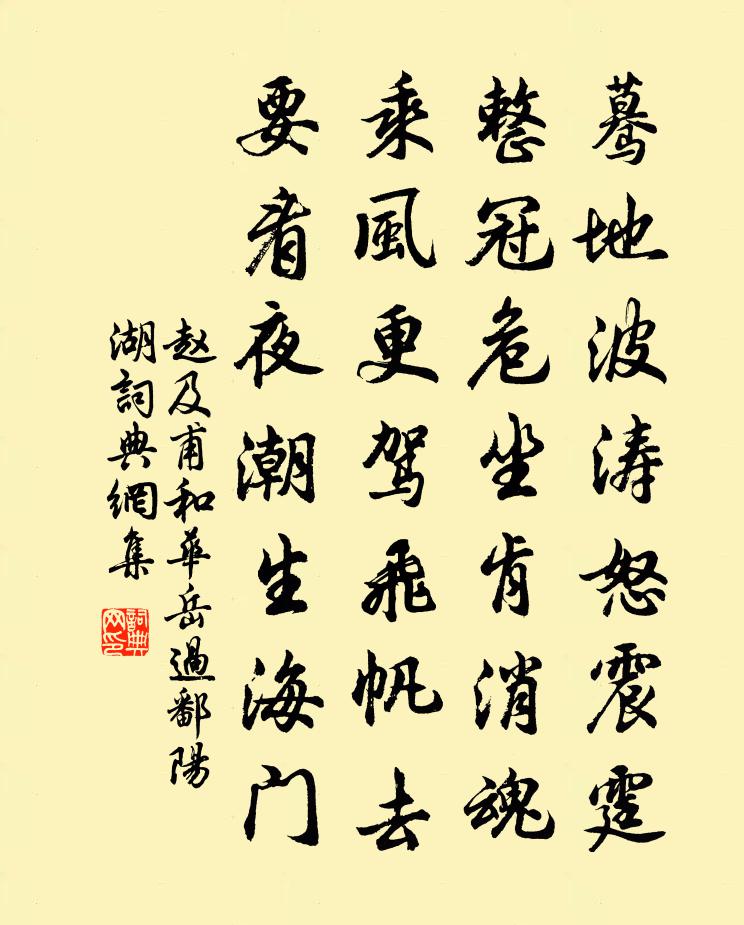 驀地波涛怒震霆
整冠危坐肯消魂
乘風更駕飛帆去
要看夜潮生海门
赵及甫和華岳過鄱陽
湖詞典網集
詞典
网印